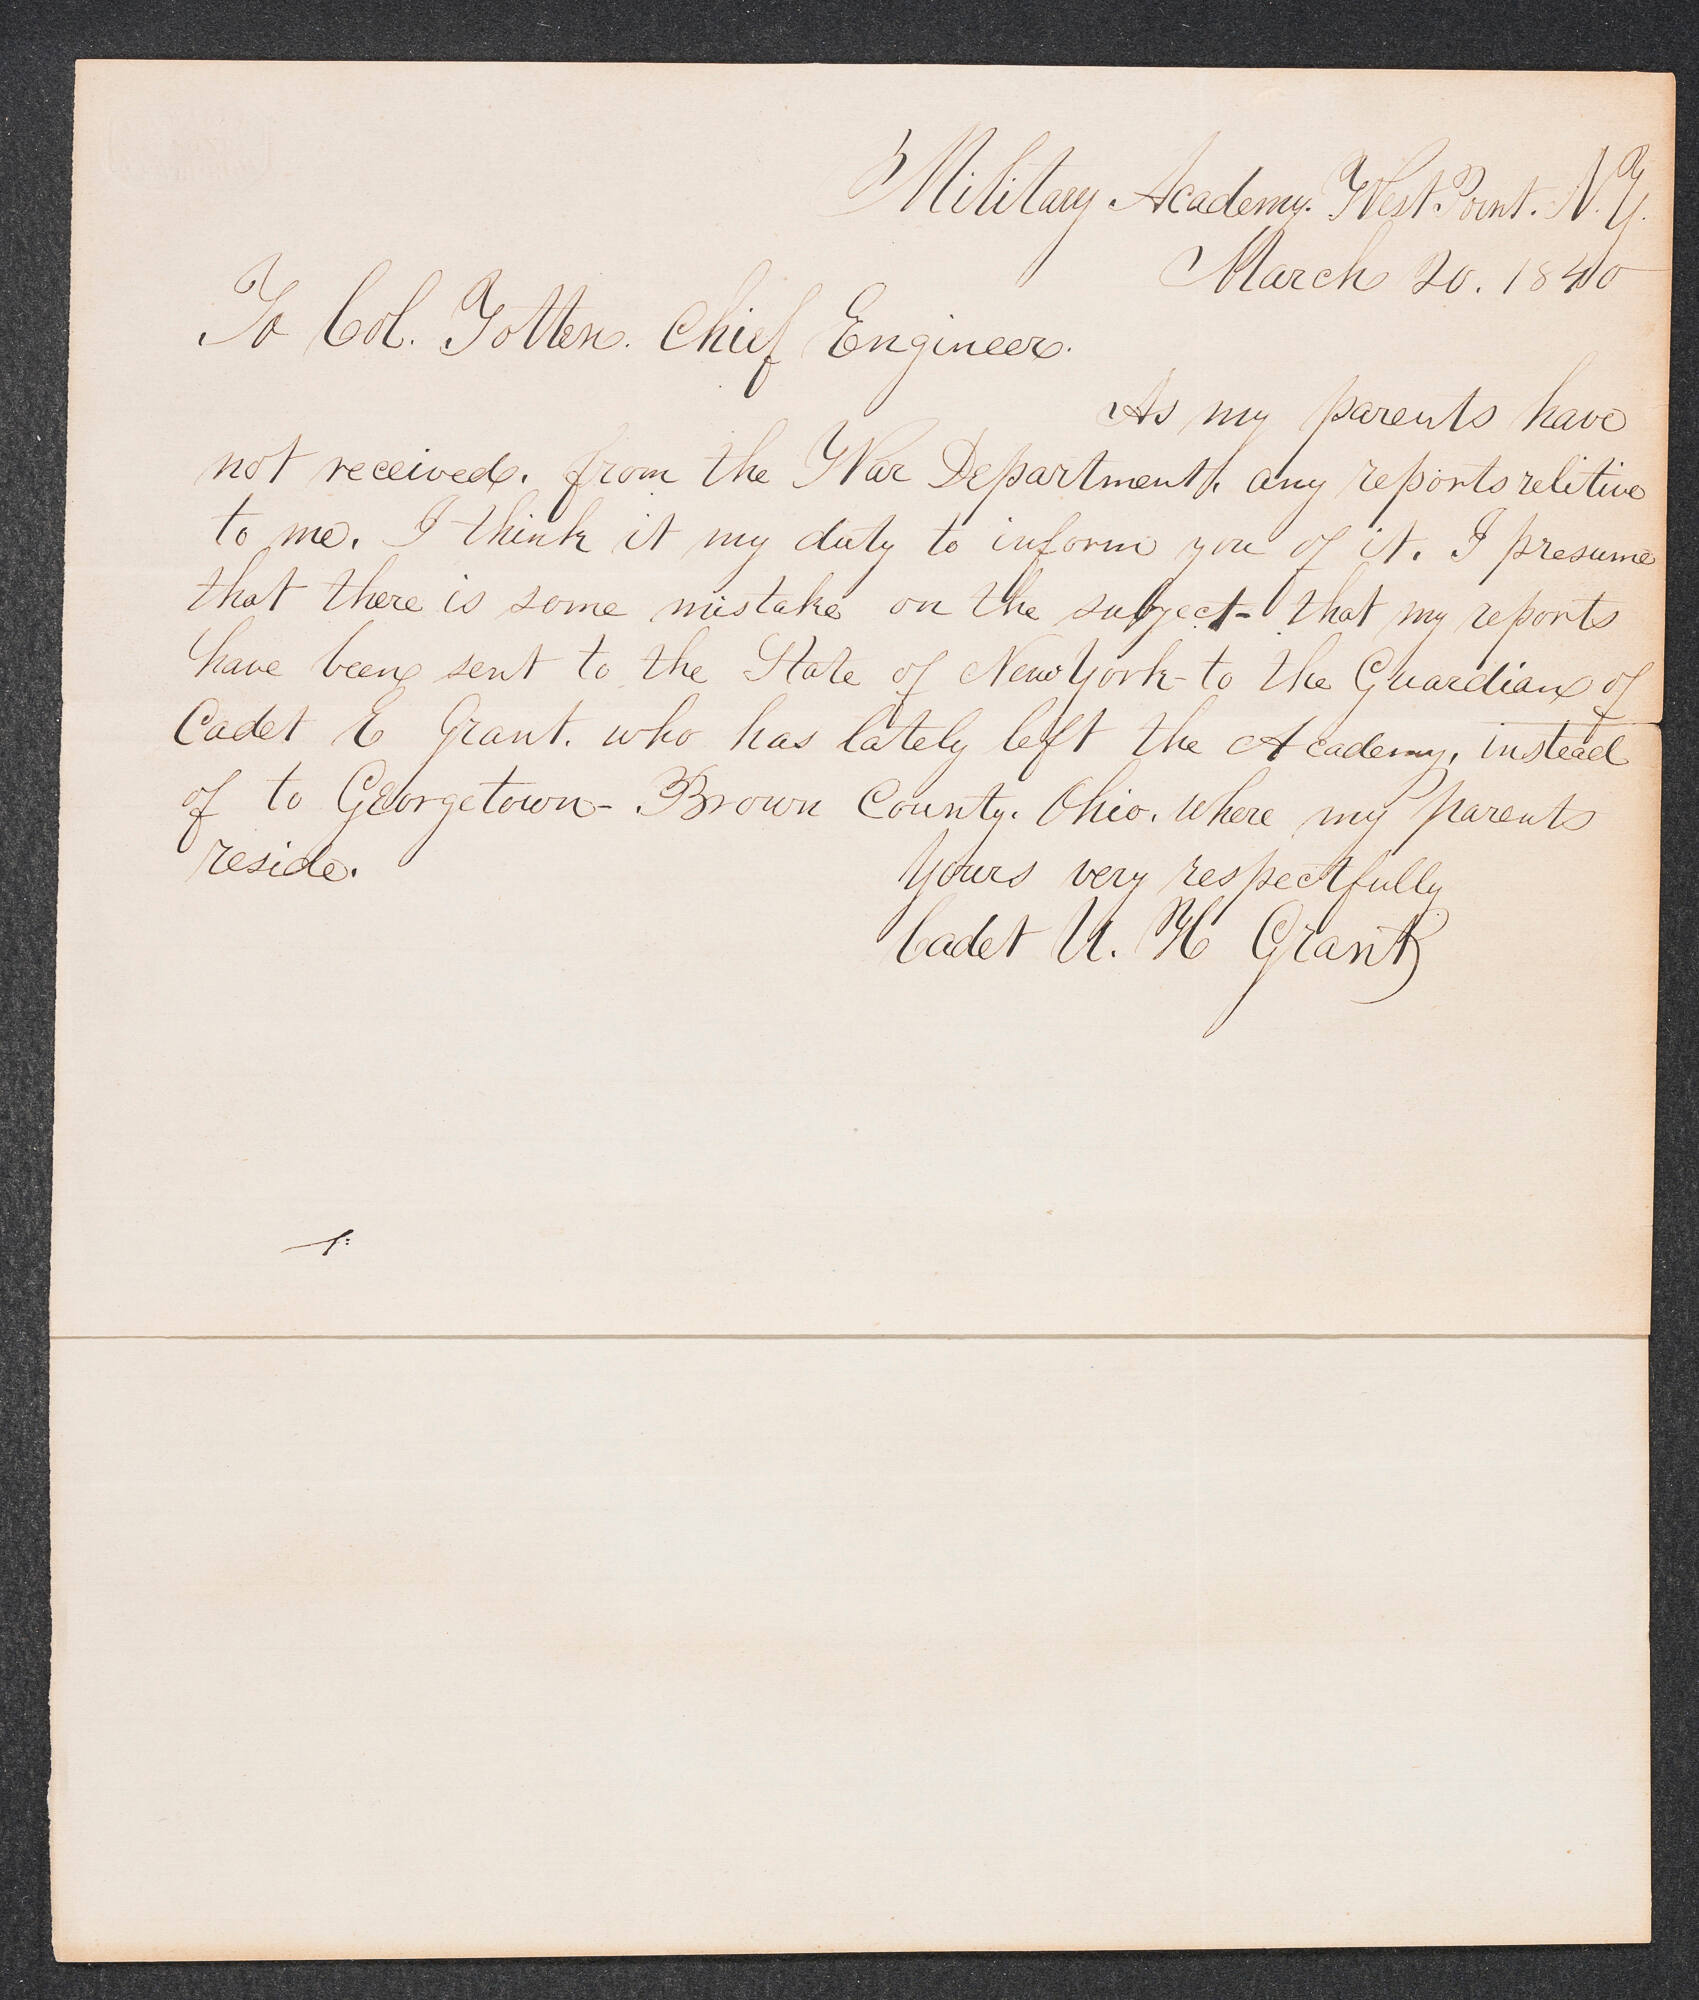 Military Academy. West Point. N.Y.
March 20. 1840
To Col. Totten. Chief Engineer.
As my parents have
not received. from the War Department. any reports relitive
to me. I think it my duty to inform you of it. I presume
that there is some mistake on the subject - that my reports
have been sent to the State of New York - to the Guardian of
Cadet E Grant. who has lately left the Academy. instead
of to Georgetown - Brown County. Ohio. where my parents
reside.
Yours very respectfully
Cadet U. H Grant